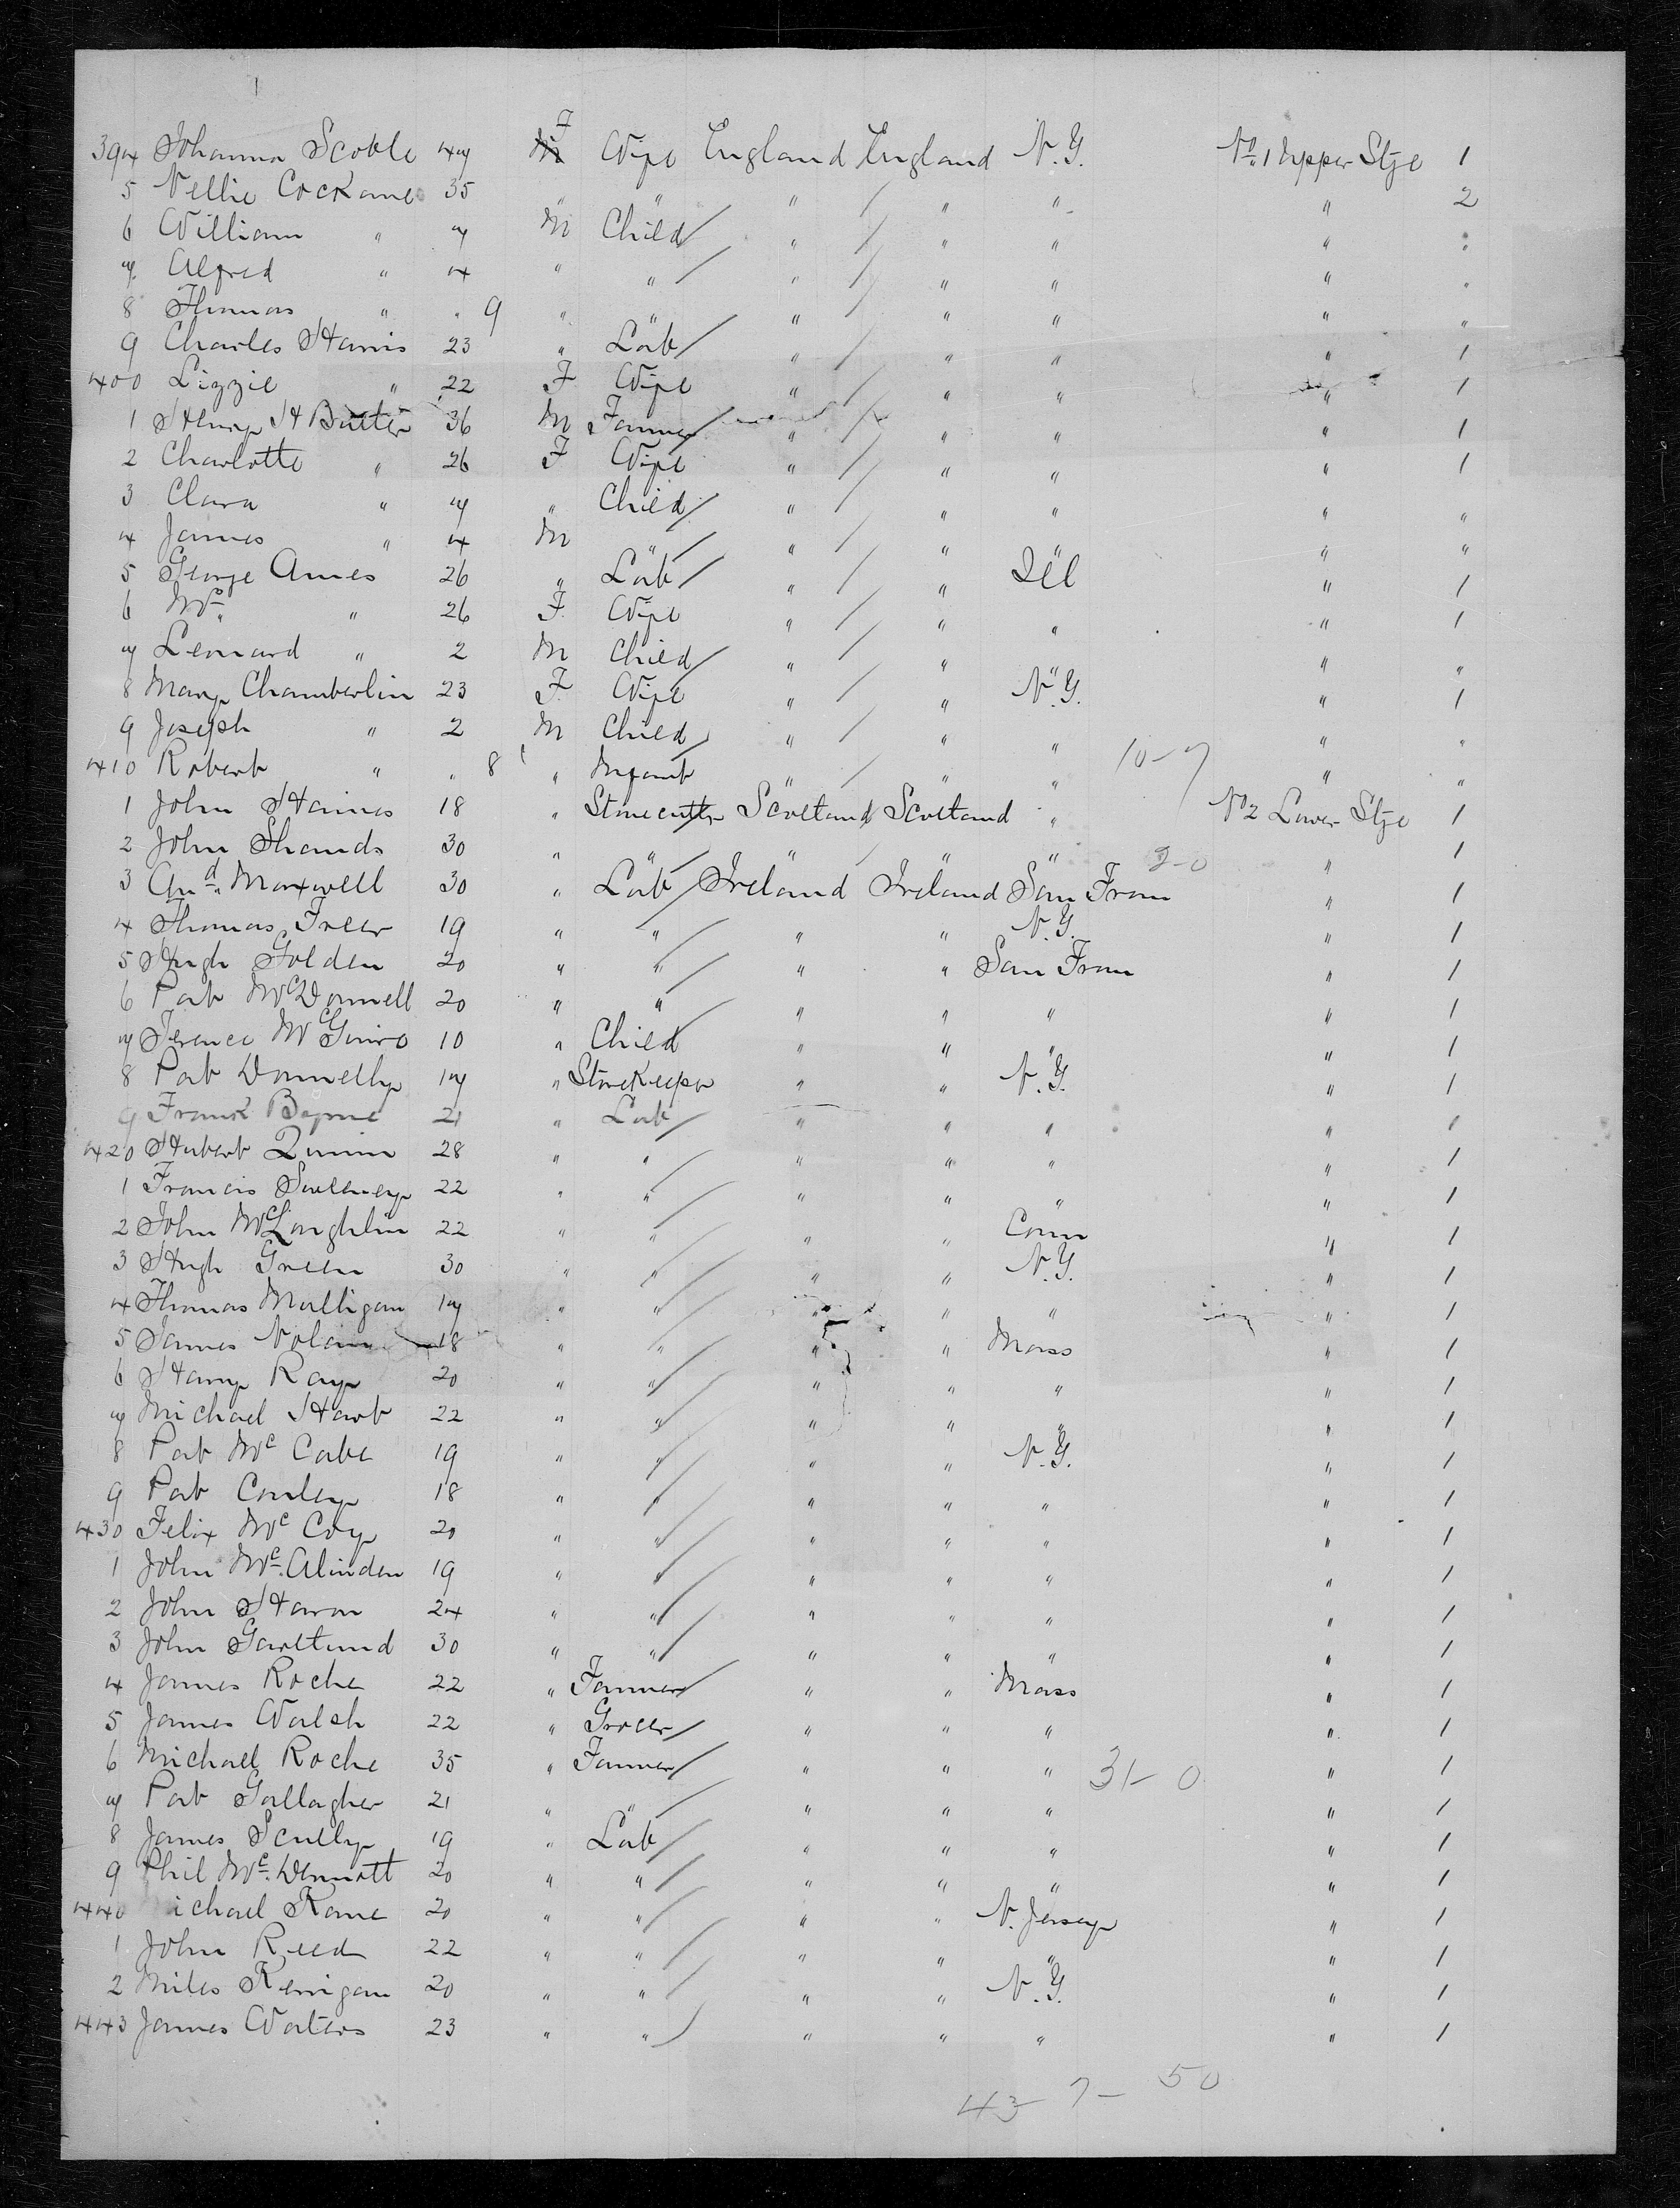 394 Johanna Scoble 47 F Wife England England N.Y. No. 1 Upper Stge 1
5 Nellie Cockane 35 " " " " " " 2
6 William " 7 M Child " " " "
7 Alfred " 4 " " " " " "
8 Thomas " " 9 " " " " " " "
9 Charles Harris 23 " Lab " " " " 1
400 Lizzie " 22 F Wife " " " " 1
1 Henry H Butter 36 M Farmer " " " " 1
2 Charlotte " 26 F Wife " " " " 1
3 Clara " 7 " Child " " " " "
4 James " 4 M " " " " " "
5 George Ames 26 " Lab " " Ill " 1
6 Mrs " 26 F Wife " " " " 1
7 Leonard " 2 M Child " " " " "
8 Mary Chamberlin 23 F Wife " " N.Y. " 1
9 Joseph " 2 M Child " " " " "
410 Robert " " 8 " Infant " " " 10-7 " "
1 John Haines 18 " Stonecutter Scotland Scotland " No 2 Lower Stge 1
2 John Shands 30 " " " " " 2-0 " 1
3 And. Maxwell 30 " Lab Ireland Ireland San Fran " 1
4 Thomas Freer 19 " " " " N.Y. " 1
5 Hugh Golden 20 " " " " San Fran " 1
6 Pat McDonnell 20 " " " " " " 1
7 Terence McGuire 10 " Child " " " " 1
8 Pat Donnelly 17 " Storekeeper " " N.Y. " 1
9 Frank Byrne 21 " Lab " " " " 1
420 Hubert Quinn 28 " " " " " " 1
1 Francis Sweeney 22 " " " " " " 1
2 John McLaughlin 22 " " " " Conn " 1
3 Hugh Green 30 " " " " N.Y. " 1
4 Thomas Mulligan 17 " " " " " " 1
5 James Nolan 18 " " " " Mass " 1
6 Harry Kaye 20 " " " " " " 1
7 Michael Hart 22 " " " " " " 1
8 Pat Mc Cabe 19 " " " " N.Y. " 1
9 Pat Conley 18 " " " " " " 1
430 Felix Mc Coy 20 " " " " " " 1
1 John Mc Alinden 19 " " " " " " 1
2 John Haron 24 " " " " " " 1
3 John Gartland 30 " " " " " " 1
4 James Roche 22 " Farmer " " Mass " 1
5 James Walsh 22 " Grocer " " " " 1
6 Michael Roche 35 " Farmer " " " 31-0 " 1
7 Pat Gallagher 21 " " " " " " 1
8 James Scully 19 " Lab " " " " 1
9 Phil Mc Dermott 20 " " " " " " 1
440 ichael Kane 20 " " " " N. Jersey " 1
1 John Reed 22 " " " " " " 1
2 Miles Kerrigan 20 " " " " N.Y. " 1
443 James Waters 23 " " " " " " 1
43 7- 50